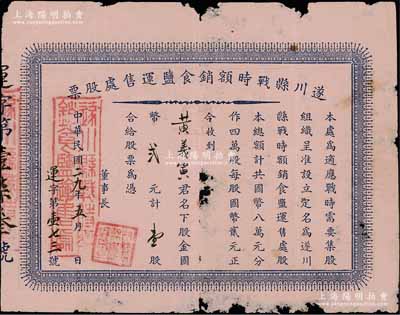 上海陽明拍賣
遂川縣戰時額銷食鹽運售處股票
本處為適應戰時需要集股
組織呈准設立定名為遂川
縣戰時額銷食鹽運售處股
本總額計共國幣八萬元分
作四萬股每股國幣貳元正
今收到
黃義寅君名下股金國
幣貳元計壹股
合給股票為憑
董事長
中華民國二九年五月 日
運字第壹七三號
運字第壹柒叁號
上海陽明拍賣